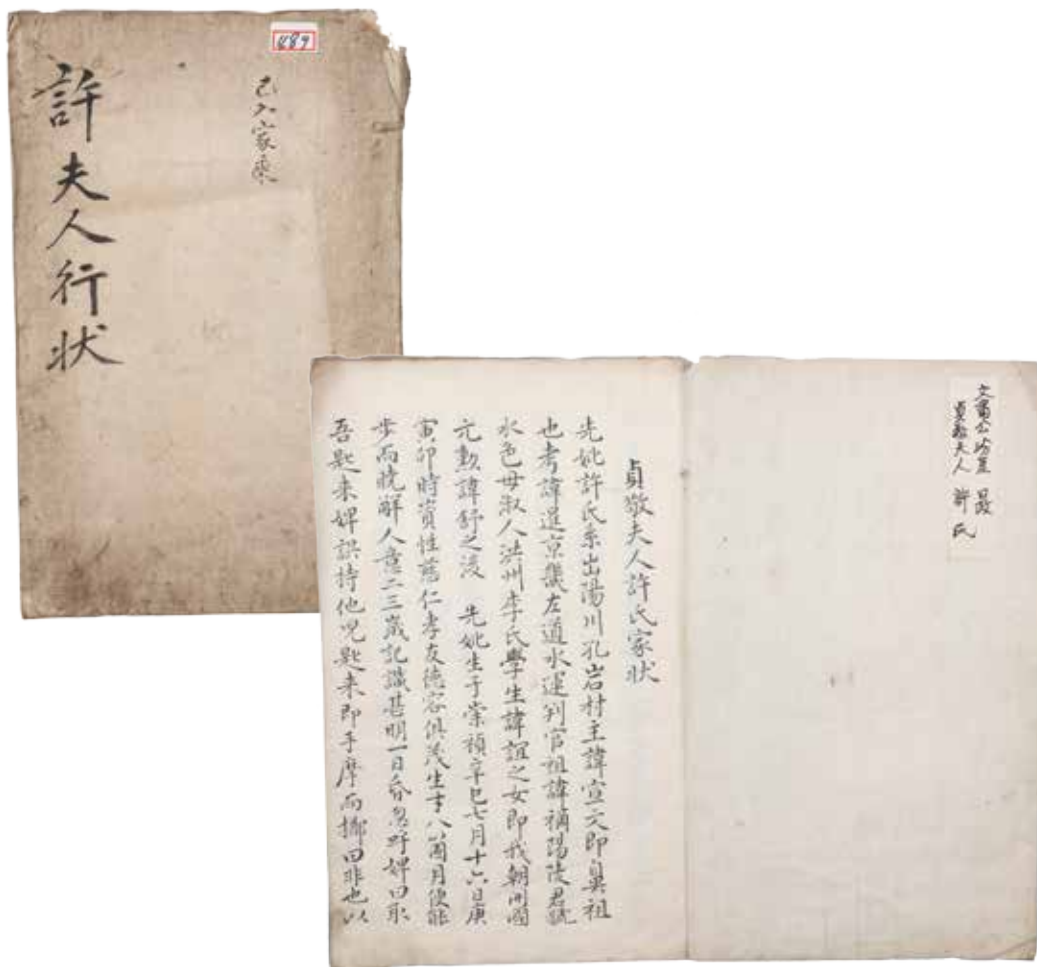 489
已入家乘
許夫人行狀
文肅公公配
貞敬夫人 許氏
貞敬夫人許氏家狀
先妣許氏系出陽川孔岩村主諱宣文即鼻祖
也考諱暹京畿左道水運判官祖諱禂陽陵君號
水色母淑人洪州李氏學生諱誼之女即我朝開國
元勳諱舒之後 先妣生于崇禎辛巳七月十六日庚
寅卯時資性慈仁孝友德容俱茂生才八箇月便能
步而曉解人意二三歲記識甚明一日昏忽呼婢曰取
吾匙来婢誤持他兒匙来即手摩而擲曰非也以